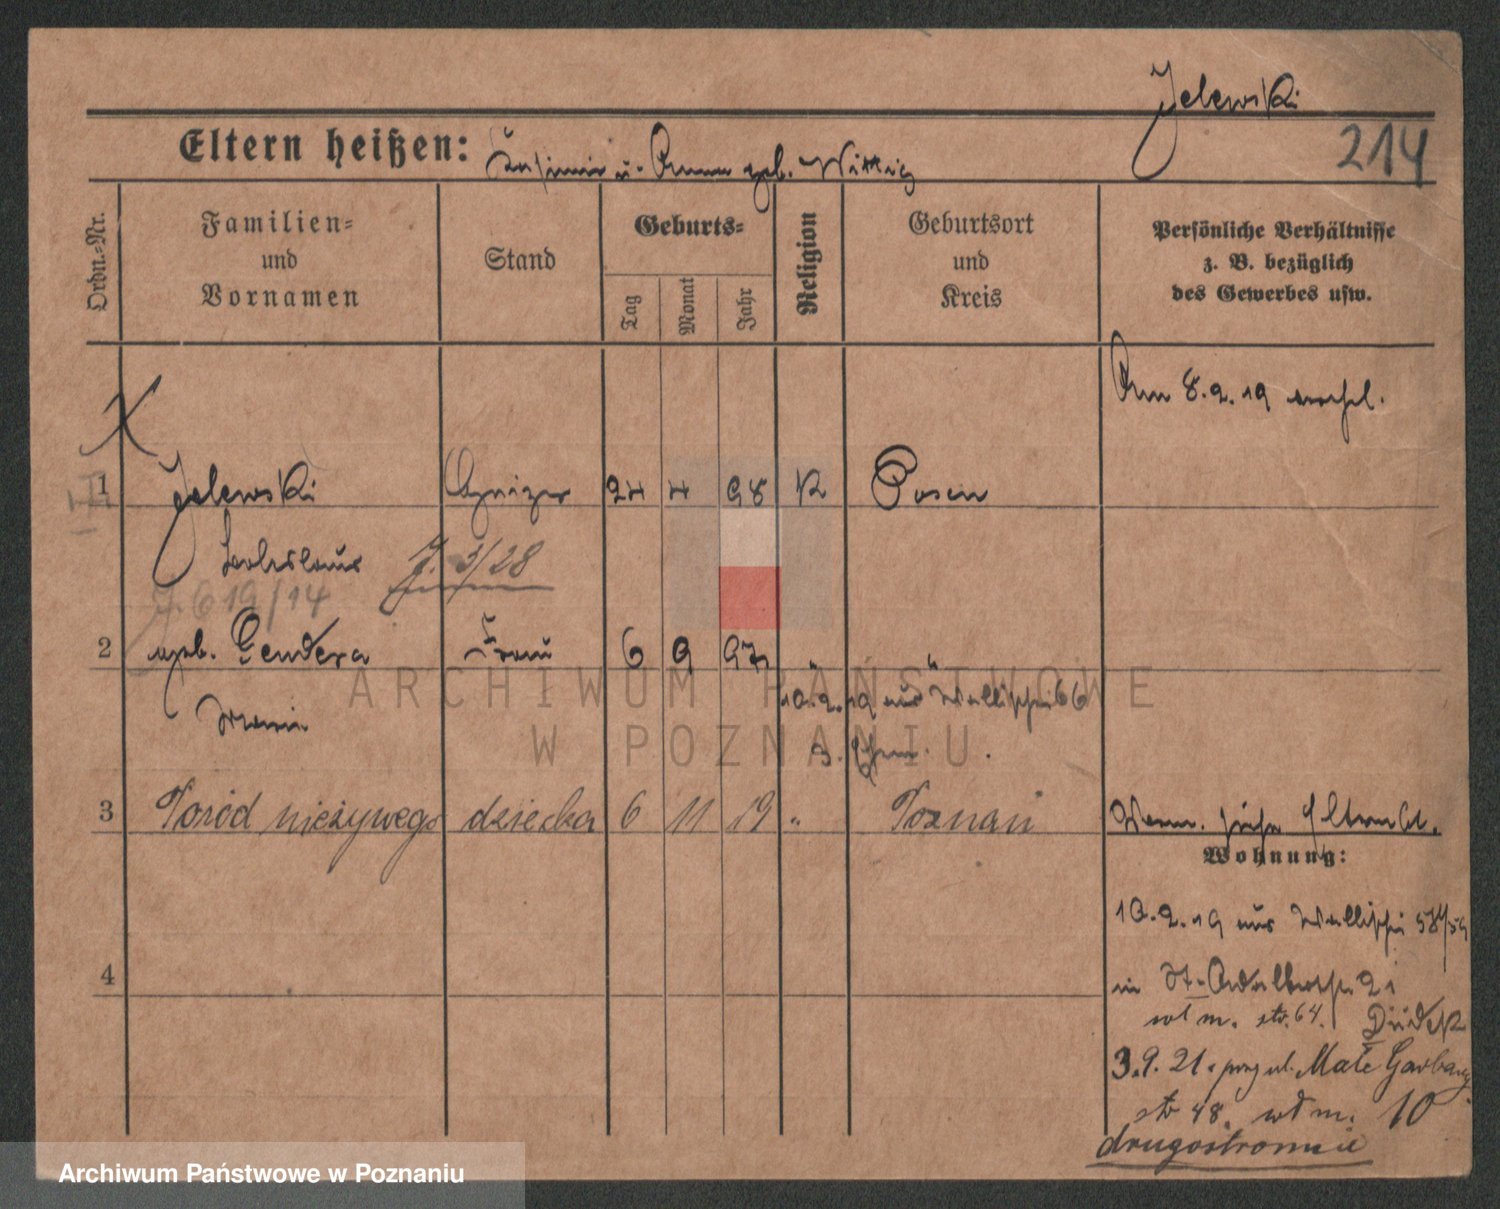 Jelewski
214
Eltern heißen: Kasimir u. Anna geb. Wittig
Ordn.-Nr.
Familien-
und
Vornamen
Stand
Geburts-
Tag
Monat
Jahr
Religion
Geburtsort
und
Kreis
Persönliche Verhältnisse
z. B. bezüglich
des Gewerbes usw.
Am 8.2.19 verehel.
1 Jelewski 24 4 98 K Posen
Boleslaus J. 3/28
J. 619/14
2 geb. Gendera Frau 6 9 97 " "
10.2.19 aus Wallischei 66
Maria
3 Poród nieżywego dziecka 6 11 19 " Poznań
Verm. siehe Elternbl.
Wohnung:
10.2.19 aus Wallischei 58/59
in St. Adalbertstr. 21
str. 64.
3.9.21. ul. Małe Garbary
str 48. wł m. 10
drugostronnie
4
ARCHIWUM PAŃSTWOWE
W POZNANIU
Archiwum Państwowe w Poznaniu